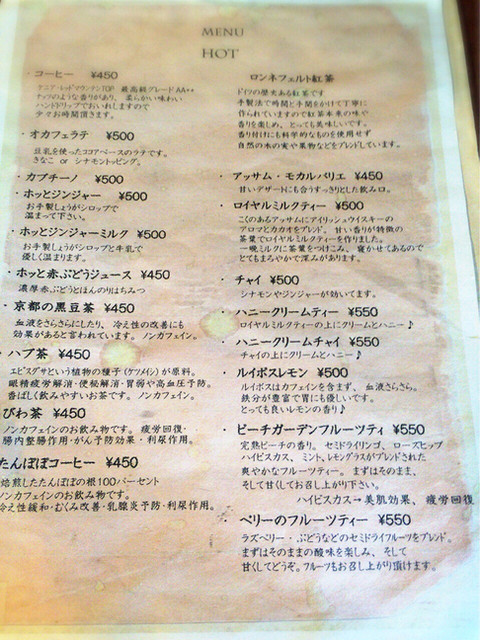 MENU
HOT
・コーヒー ¥450
ケニア・レッドマウンテンTOP 最高級グレードAA++
ナッツのような香りがあり、柔らかい味わい
ハンドドリップでおいれしますので
少々お時間頂きます。
・オカフェラテ ¥500
豆乳を使ったココアベースのラテです。
きなこ or シナモントッピング。
・カプチーノ ¥500
・ホッとジンジャー ¥500
お手製しょうがシロップで
温まって下さい。
・ホッとジンジャーミルク ¥500
お手製しょうがシロップと牛乳で
優しく温まります。
・ホッと赤ぶどうジュース ¥450
濃厚赤ぶどうとほんのりはちみつ
・京都の黒豆茶 ¥450
血液をさらさらにしたり、冷え性の改善にも
効果があると言われています。ノンカフェイン。
・ハブ茶 ¥450
エビスグサという植物の種子(ケツメイシ)が原料。
眼精疲労解消・便秘解消・胃弱や高血圧予防。
香ばしく飲みやすいお茶です。ノンカフェイン。
びわ茶 ¥450
ノンカフェインのお飲み物です。疲労回復・
腸内整腸作用・がん予防効果・利尿作用。
たんぽぽコーヒー ¥450
焙煎したたんぽぽの根100パーセント
ノンカフェインのお飲み物です。
冷え性緩和・むくみ改善・乳腺炎予防・利尿作用。
ロンネフェルト紅茶
ドイツの歴史ある紅茶です
手製法で時間と手間をかけて丁寧に
作られていますので紅茶本来の味や
香りを楽しめ、とっても美味しいです。
香り付けにも科学的なものを使用せず
自然の木の実や果物などをブレンドしています。
・アッサム・モカルバリエ ¥450
甘いデザートにも合うすっきりとした飲み口。
・ロイヤルミルクティー ¥500
こくのあるアッサムにアイリッシュウイスキーの
アロマとカカオをブレンド。甘い香りが特徴の
茶葉でロイヤルミルクティーを作りました。
一晩ミルクに茶葉をつけこみ、寝かせてあるので
とてもまろやかで深みがあります。
・チャイ ¥500
シナモンやジンジャーが効いてます。
・ハニークリームティー ¥550
ロイヤルミルクティーの上にクリームとハニー♪
・ハニークリームチャイ ¥550
チャイの上にクリームとハニー♪
・ルイボスレモン ¥500
ルイボスはカフェインを含まず、血液さらさら。
鉄分が豊富で胃にも優しいです。
とっても良いレモンの香り♪
・ピーチガーデンフルーツティ ¥550
完熟ピーチの香り。セミドライリンゴ、ローズヒップ
ハイビスカス、ミント、レモングラスがブレンドされた
爽やかなフルーツティー。まずはそのまま、
そして甘くしてお召し上がり下さい。
ハイビスカス→美肌効果、疲労回復
・ベリーのフルーツティー ¥550
ラズベリー・ぶどうなどのセミドライフルーツをブレンド。
まずはそのままの酸味を楽しみ、そして
甘くしてどうぞ。フルーツもお召し上がり頂けます。